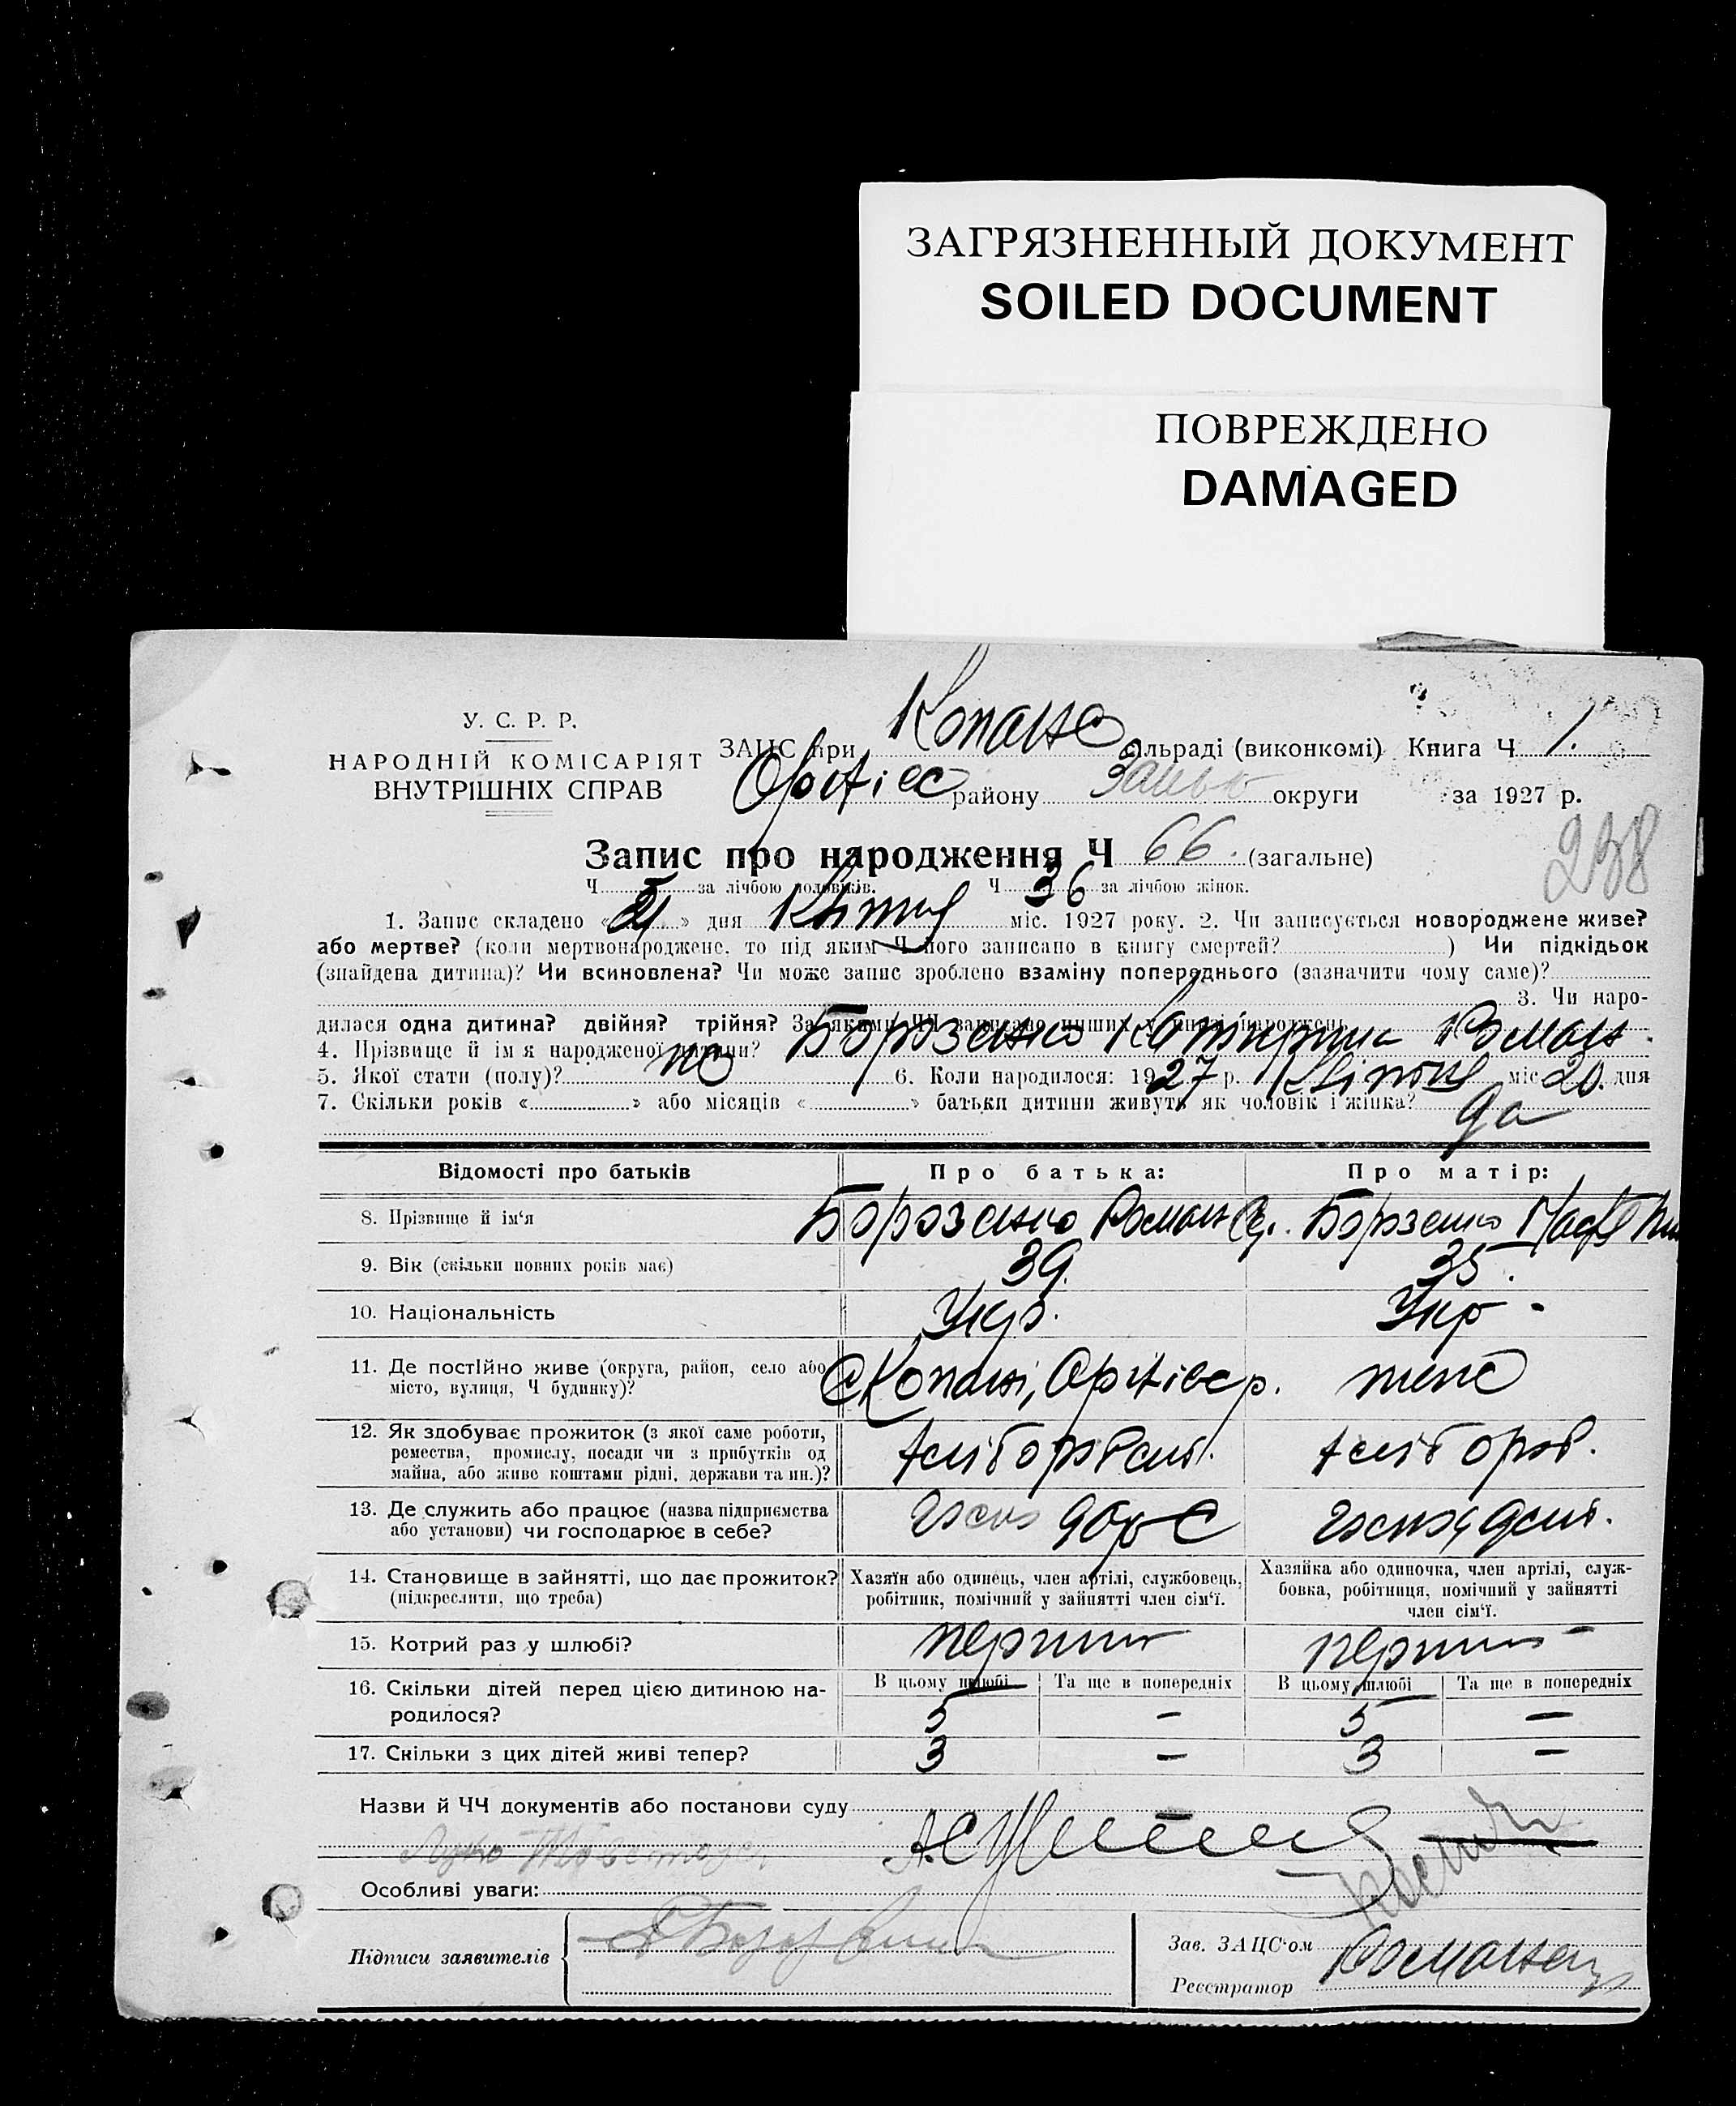 ЗАГРЯЗНЕННЫЙ ДОКУМЕНТ
SOILED DOCUMENT
ПОВРЕЖДЕНО
DAMAGED
У. С. Р. Р.
НАРОДНІЙ КОМІСАРІЯТ
ВНУТРІШНІХ СПРАВ
ЗАЦС при Копане сільраді (виконкомі) Книга Ч 1.
Оріхівс району Запьо округи за 1927 р.
238
Запис про народження Ч 66. (загальне)
Ч за лічбою чоловіків. Ч 36 за лічбою жінок.
1. Запис складено « 21 » дня Квітня міс. 1927 року. 2. Чи записується новороджене живе?
або мертве? (коли мертвонароджене, то під яким Ч його записано в книгу смертей? ) Чи підкідьок
(знайдена дитина)? Чи всиновлена? Чи може запис зроблено взаміну попереднього (зазначити чому саме)?
3. Чи наро-
дилася одна дитина? двійня? трійня? За якими ЧЧ записано инших у книзі народжень
4. Прізвище й ім'я народженої дитини? Борозенко Катерина Роман.
5. Якої стати (полу)? 6. Коли народилося: 1927 р. Квітня міс 20. дня
7. Скільки років « » або місяців « » батьки дитини живуть як чоловік і жінка? да
Відомості про батьків
Про батька:
Про матір:
8. Прізвище й ім'я Борозенко Роман Борзенко
9. Вік (скільки повних років має) 39. 35.
10. Національність Укр. Укр -
11. Де постійно живе (округа, район, село або
місто, вулиця, Ч будинку)? с Копані, Оріхівс р. теж
12. Як здобуває прожиток (з якої саме роботи,
ремества, промислу, посади чи з прибутків од
майна, або живе коштами рідні, держави та ин.)? хліборобст. хлібороб.
13. Де служить або працює (назва підприємства
або установи) чи господарює в себе?
14. Становище в зайнятті, що дає прожиток?
(підкреслити, що треба)
Хазяїн або одинець, член артілі, службовець,
робітник, помічний у зайнятті член сім'ї.
Хазяйка або одиночка, член артілі, служ-
бовка, робітниця, помічний у зайнятті
член сім'ї.
15. Котрий раз у шлюбі? перший перший -
16. Скільки дітей перед цією дитиною на-
родилося?
В цьому шлюбі Та ще в попередніх В цьому шлюбі Та ще в попередніх
5 - 5 -
17. Скільки з цих дітей живі тепер? 3 - 3 -
Назви й ЧЧ документів або постанови суду
Особливі уваги:
Підписи заявителів
Зав. ЗАЦС'ом
Реєстратор